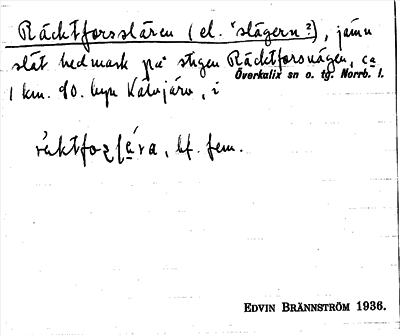 Räcktforsslåren (el. "slägern"?), jämn
slät hedmark på stigen Räcktforsvägen, ca
Överkalix sn o. tg. Norrb. l.
1 km. SO. byn Kälvjärv, i
bf. fem.
EDVIN BRÄNNSTRÖM 1936.